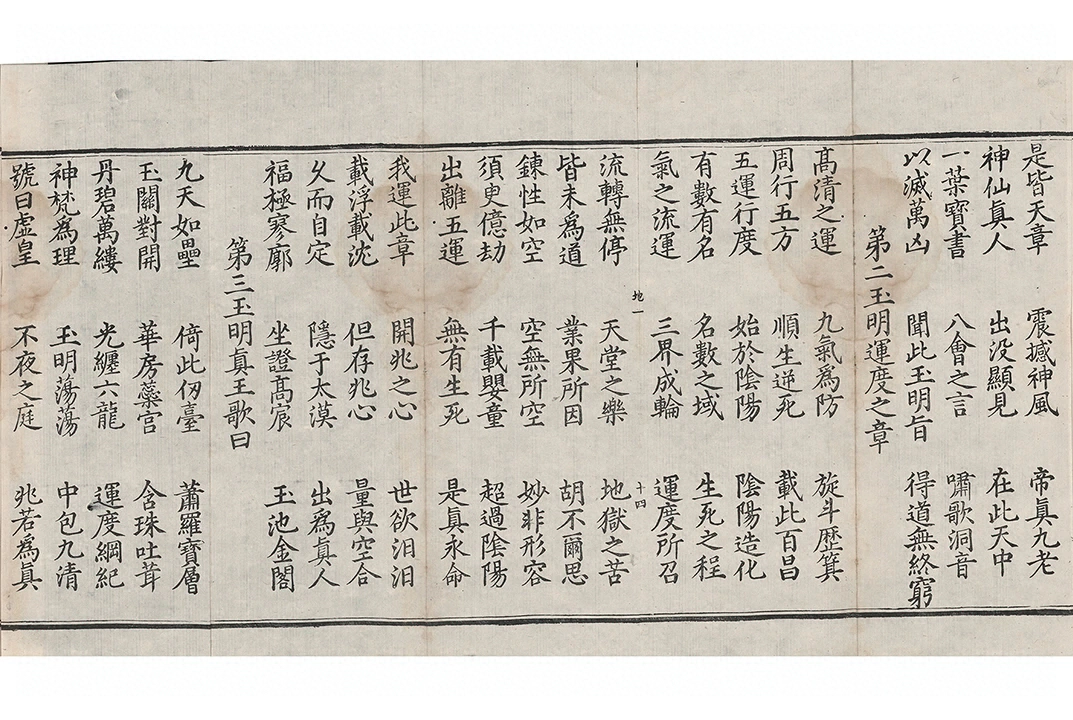 是皆天章 震撼神風 帝眞九老
神仙眞人 出没顯見 在此天中
一葉寶書 八會之言 嘯歌洞音
以滅萬凶 聞此玉明旨 得道無終窮
第二玉明運度之章
高清之運 九氣為防 旋斗歷箕
周行五方 順生逆死 載此百昌
五運行度 始於陰陽 陰陽造化
有數有名 名數之域 生死之程
氣之流運 三界成輪 運度所召
地一 十四
流轉無停 天堂之樂 地獄之苦
皆未為道 業果所因 胡不爾思
鍊性如空 空無所空 妙非形容
須臾億劫 千載嬰童 超過陰陽
出離五運 無有生死 是眞永命
我運此章 開兆之心 世欲汨汨
載浮載沈 但存兆心 量與空合
久而自定 隱于太漠 出為眞人
福極寥廓 坐證高宸 玉池金閣
第三玉明眞王歌曰
九天如壘 倚此仞臺 蕭羅寶層
玉關對開 華房蘂宫 含珠吐茸
丹碧萬縷 光纏六龍 運度綱紀
神梵為理 玉明蕩蕩 中包九清
號曰虛皇 不夜之庭 兆若為眞